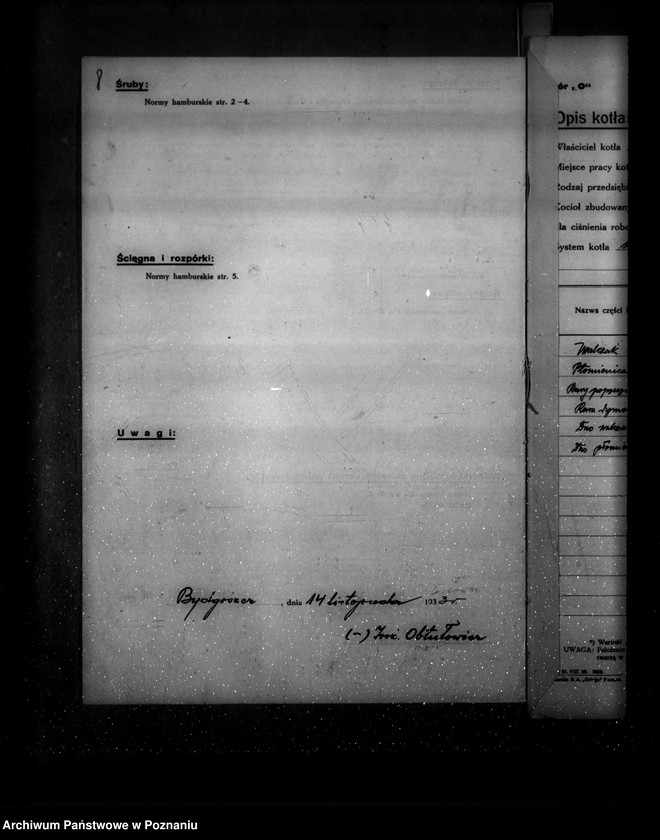 8
Śruby:
Normy hamburskie str. 2–4.
Ścięgna i rozpórki:
Normy hamburskie str. 5.
Uwagi:
Bydgoszcz, dnia 14 listopada 1933 r.
(-) Inż. Obtułowicz
ór „O"
Opis kotła
Właściciel kotła
Miejsce pracy kot
Rodzaj przedsiębi
Kocioł zbudowan
dla ciśnienia robo
System kotła
Nazwa części
Walczak
Płomienica
Rury
Rura dymo
Dno walcza
Dno płomie
*) Wartość
UWAGA: Położenie
Archiwum Państwowe w Poznaniu